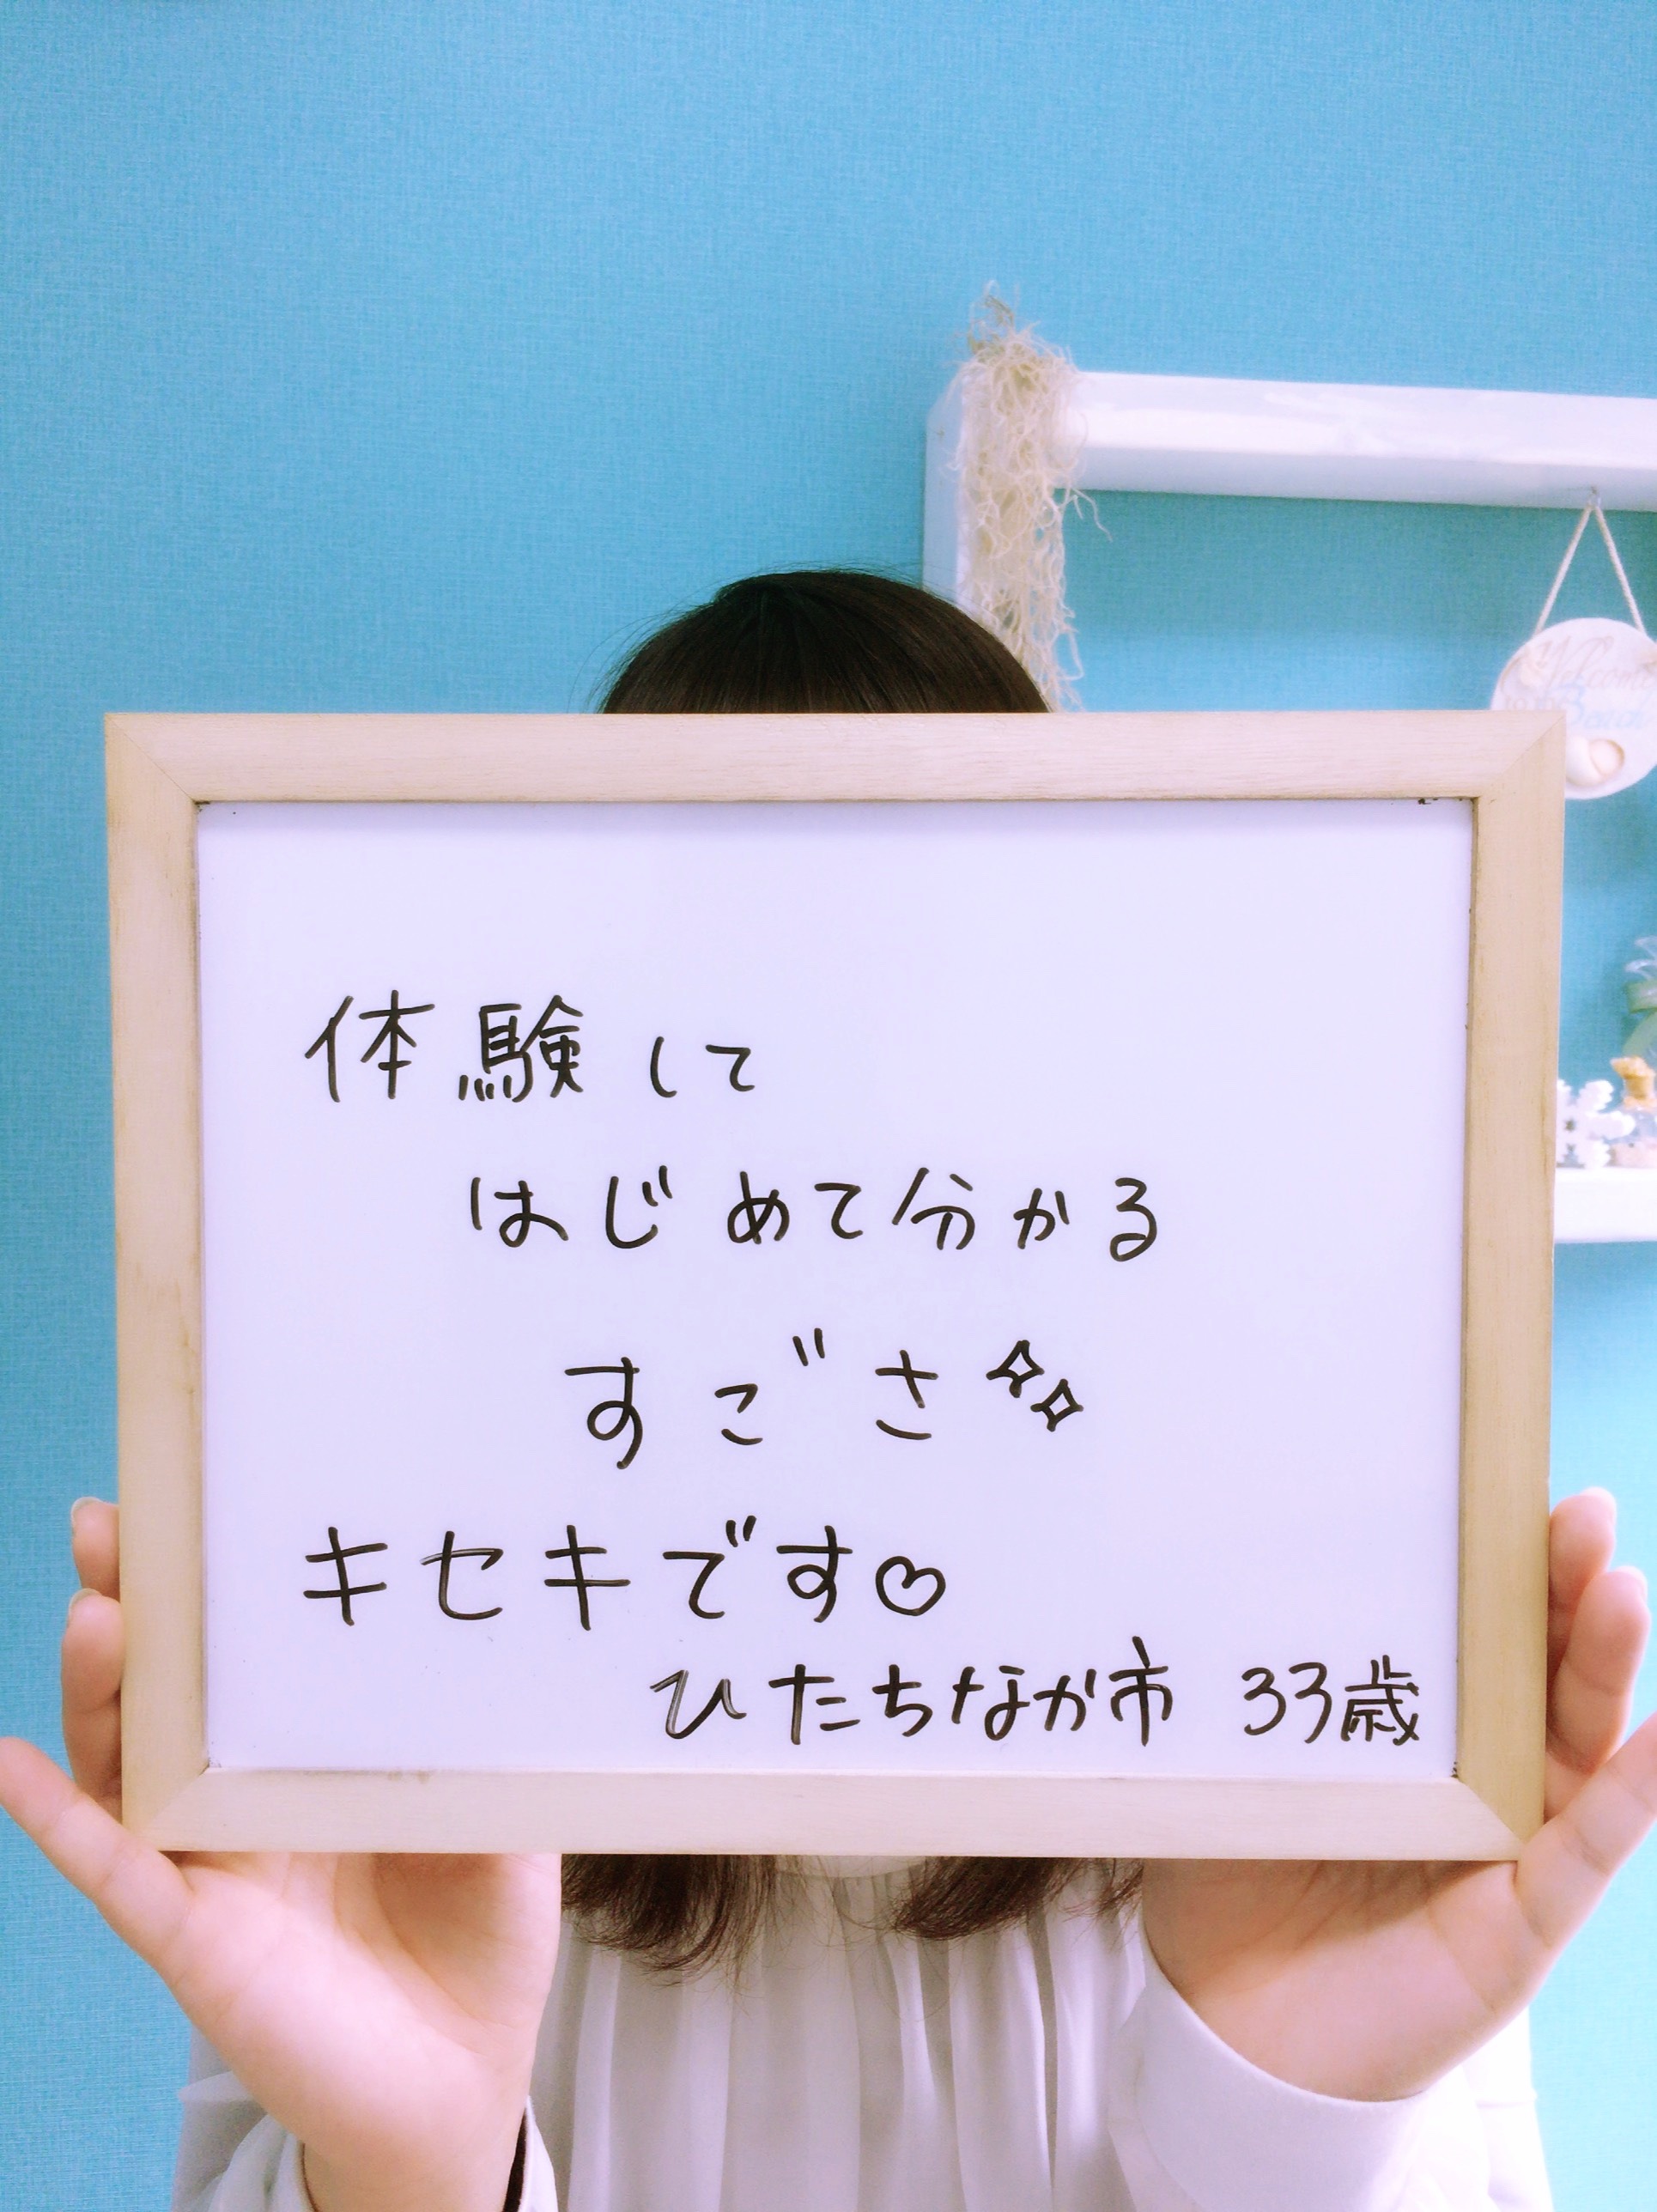 体験して
はじめて分かる
すごさ
キセキです♡
ひたちなか市 33歳
Welcome
Beach